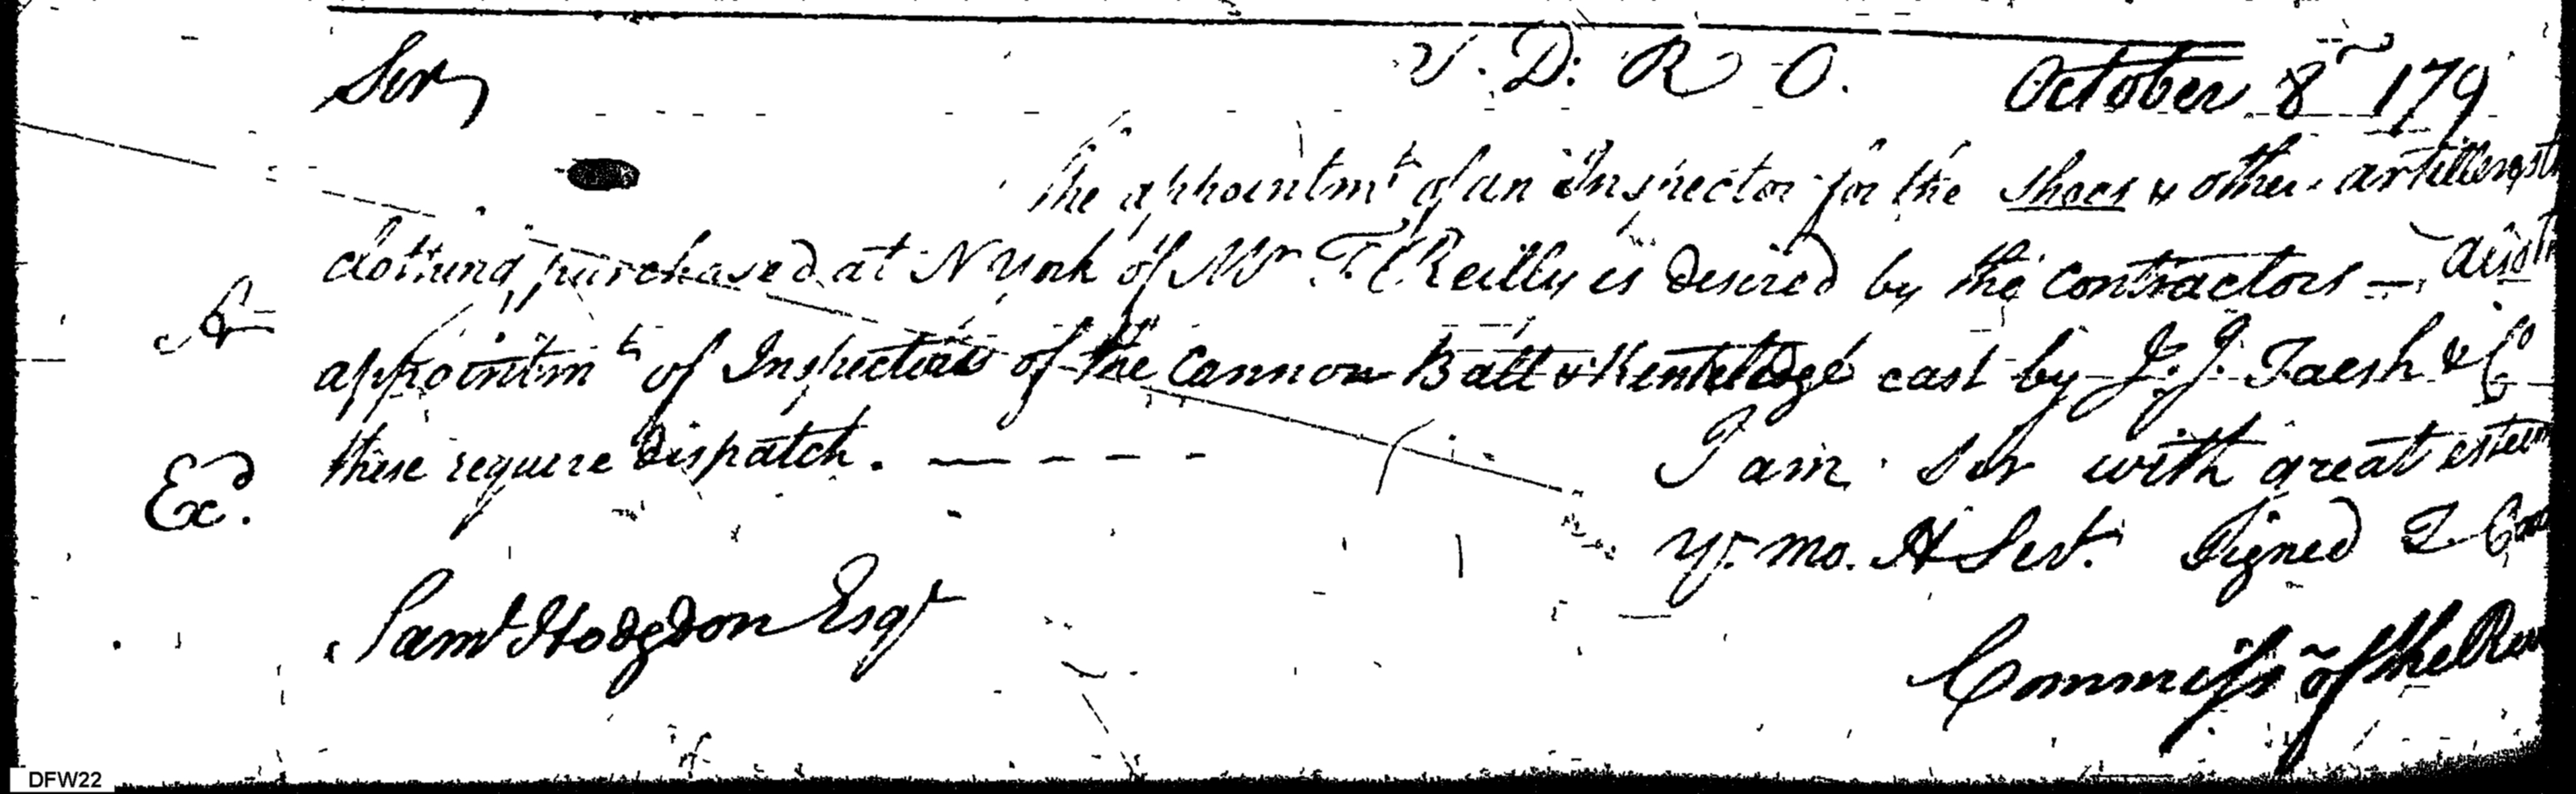 Sir, T. D: R O. October 8 179
The appointmt of an Inspector for the shoes & other artillery
clothing purchased at N York of Mr T. C Reilly is desired by the contractors —
appointmt of Inspectors of the Cannon Ball & Kentledge cast by J. J. Faesh & Co
Exd. these require dispatch. — — — — I am Sir with great esteem
Yr. mo. H Servt. Signed T. Coxe
Saml Hodgdon Esqr
Commissr of the Rev
DFW22